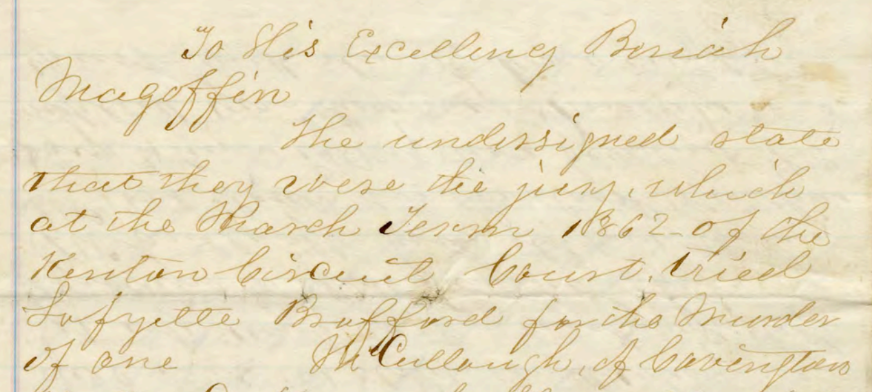 To His Excellency Beriah
Magoffin
The undersigned state
that they were the jury, which
at the March Term 1862 of the
Kenton Circuit Court, tried
Lafyette Brafford for the Murder
of one McCullough, of Covington